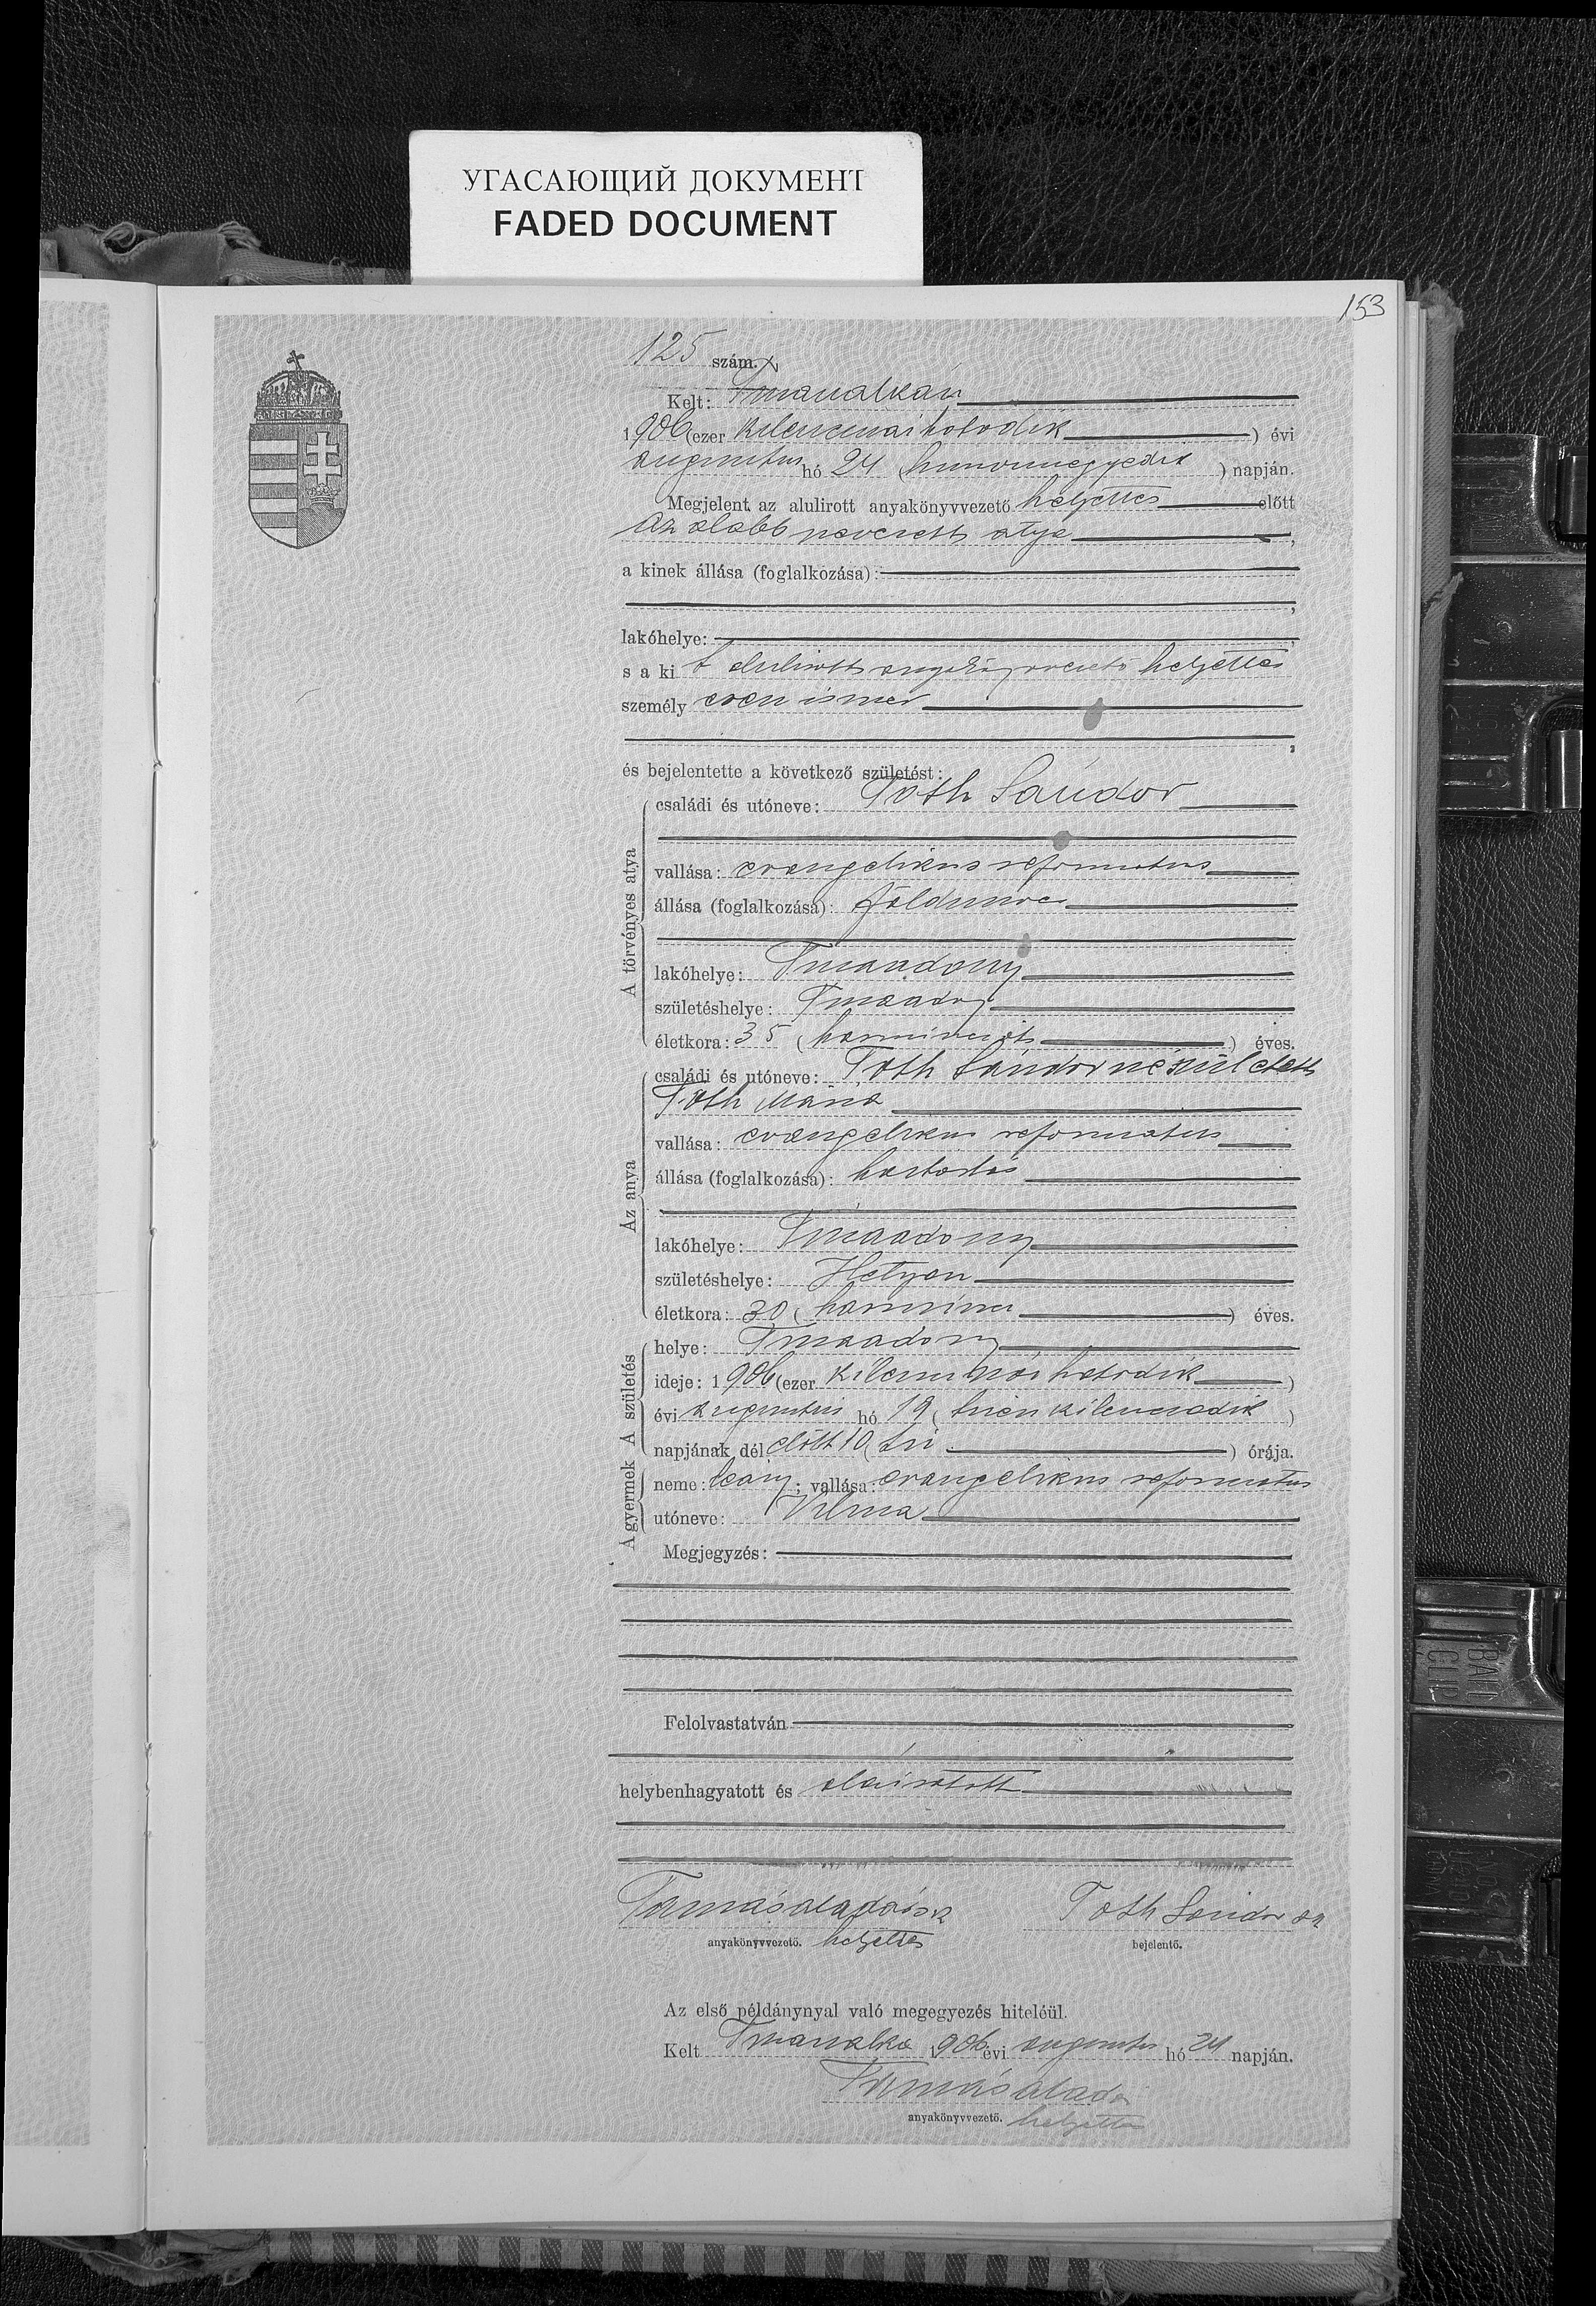 УГАСАЮЩИЙ ДОКУМЕНТ
FADED DOCUMENT
153
125 szám.
Kelt: Tmavalkán
1906 (ezer kilencszázhatodik) évi
augusztus hó 24 (huszonnegyedik) napján.
Megjelent az alulirott anyakönyvvezető helyettes előtt
az alább nevezett atya,
a kinek állása (foglalkozása):
lakóhelye:
s a kit alulirott anyakönyvvezető helyettes
személyesen ismer
és bejelentette a következő születést:
A törvényes atya
családi és utóneve: Tóth Sándor
vallása: evangelikus reformatus
állása (foglalkozása): földmives
lakóhelye: Tmaadony
születéshelye: Tmaadony
életkora: 35 (harmincöt) éves.
Az anya
családi és utóneve: Tóth Sándorné született
Tóth Mária
vallása: evangelikus reformatus
állása (foglalkozása): háztartás
lakóhelye: Tmaadony
születéshelye: Hetyen
életkora: 30 (harminc) éves.
A születés
helye: Tmaadony
ideje: 1906 (ezer kilencszázhatodik)
évi augusztus hó 19 (tizenkilencedik)
napjának délelőtt 10 (tíz) órája.
A gyermek
neme: leány; vallása: evangelikus reformatus
utóneve: Vilma
Megjegyzés:
Felolvastatván
helybenhagyatott és aláiratott
Tamás Aladár sk Tóth Sándor sk
anyakönyvvezető. helyettes bejelentő.
Az első példánynyal való megegyezés hiteléül.
Kelt Tmavalka 1906 évi augusztus hó 24 napján.
Tamás Aladár
anyakönyvvezető. helyettes
BALL
CLIP